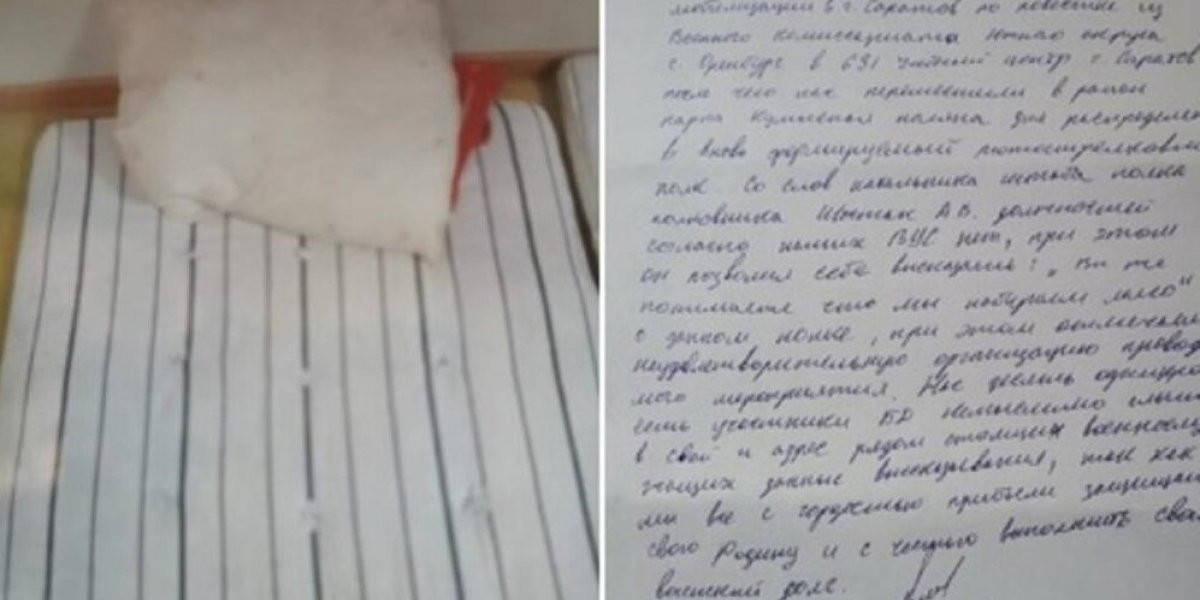 мобилизации в г. Саратов по повестке из
Военного комиссариата Южного округа
г. Оренбург в 631 учебный центр г. Саратов
после чего нас переместили в район
парка Кумысная поляна для распределен
в вновь формируемый мотострелковый
полк. Со слов начальника штаба полка
полковника А.В. должностей
согласно наших ВУС нет, при этом
он позволил себе высказывание: „Вы же
понимаете что мы набираем мясо"
с данном полке, при этом отмечаем
неудовлетворительную организацию провод
мого мероприятия. Нас
есть участники БД немыслимо слыш
в свой и адрес рядом стоящих военнослу
жащих данные высказывания, так как
мы все с гордостью прибыли защищать
свою Родину и с честью выполнить свой
воинский долг.